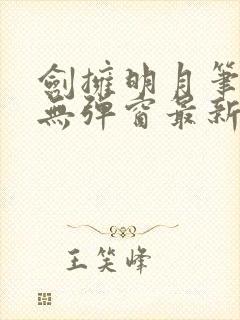 劍擁明月筆
無彈窗最新
王笑峰